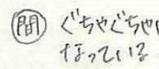 間 ぐちゃぐちゃに
なっている